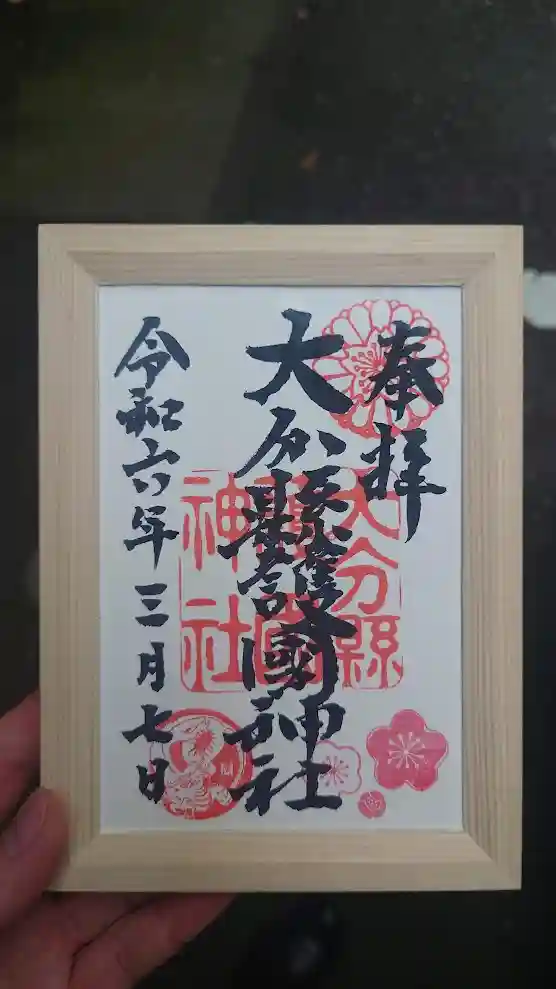 奉拝
大分縣護國神社
大分縣
護國
神社
令和六年三月七日